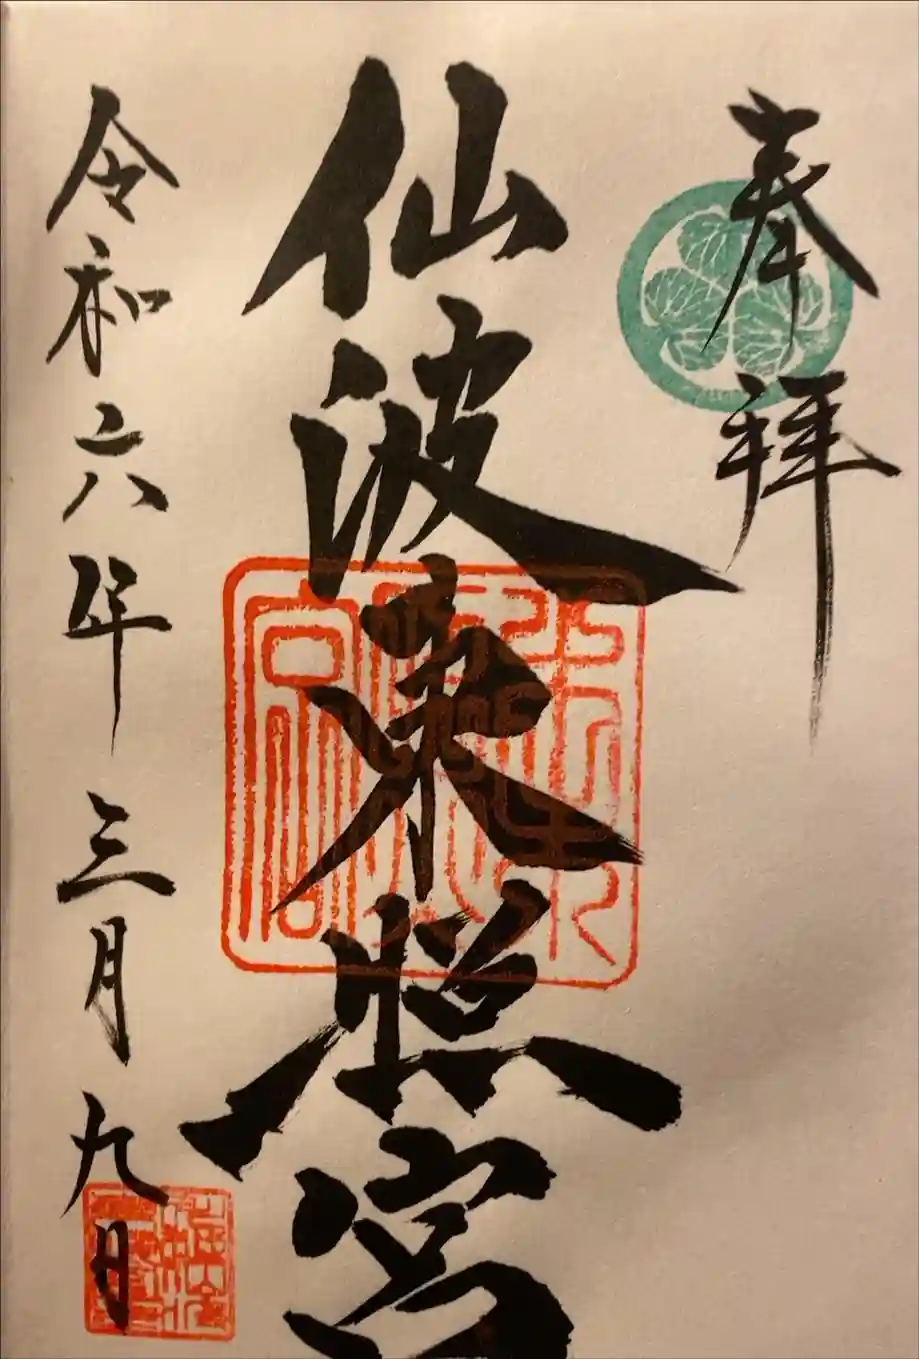 奉拝
仙波東照宮
令和六年三月九日